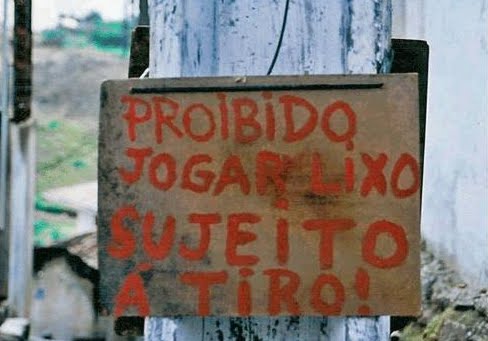 PROIBIDO
JOGAR LIXO
SUJEITO
Á TIRO!